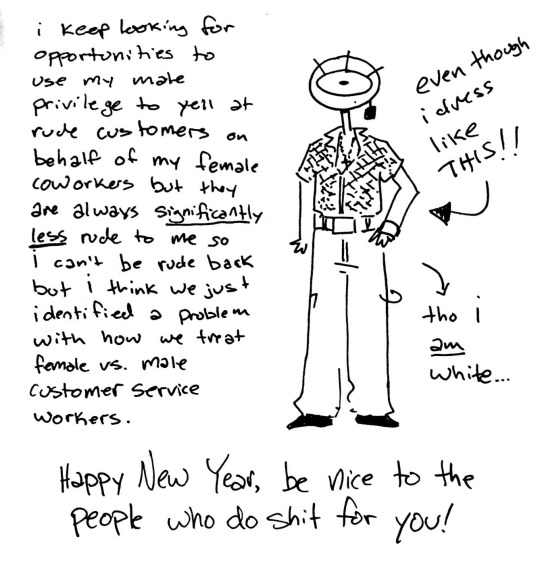 i keep looking for
opportunities to
use my male
privilege to yell at
rude customers on
behalf of my female
coworkers but they
are always significantly
less rude to me so
i can't be rude back
but i think we just
identified a problem
with how we treat
female vs. male
customer service
workers.
even though
i dress
like
THIS!!
tho i
am
white...
Happy New Year, be nice to the
people who do shit for you!